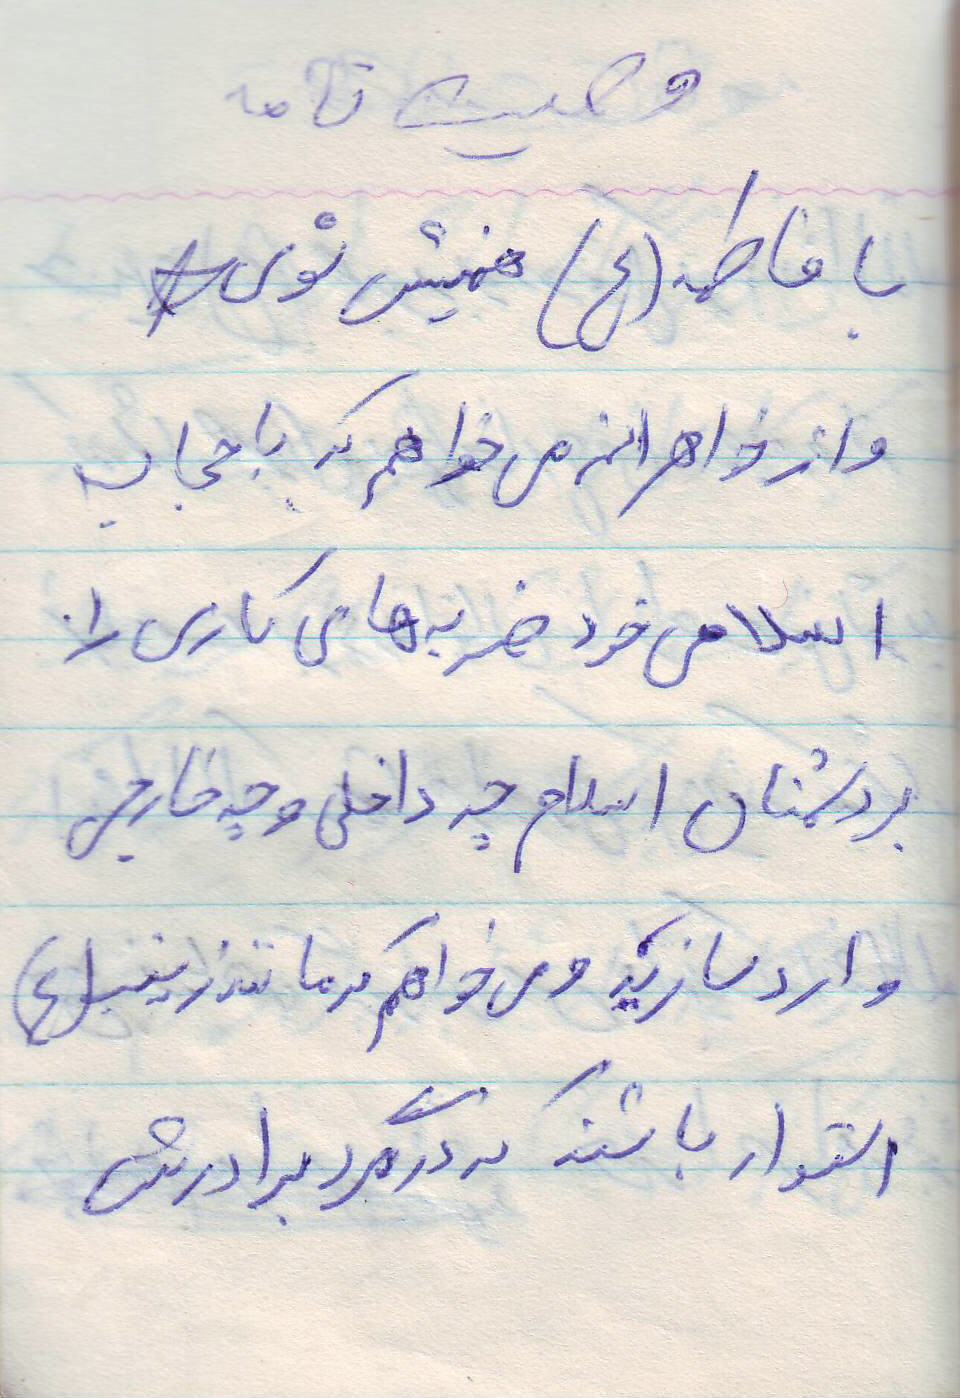 وصیت نامه
با فاطمه (ع) همنیش شوی
و از خواهرانم می خواهم که با حجاب
اسلامی خود ضربه های کاری را
بر دشمنان اسلام چه داخلی و چه خارجی
وارد سازید و می خواهم که مانند زینب (ع)
استوار باشند که در مرگ برادرش